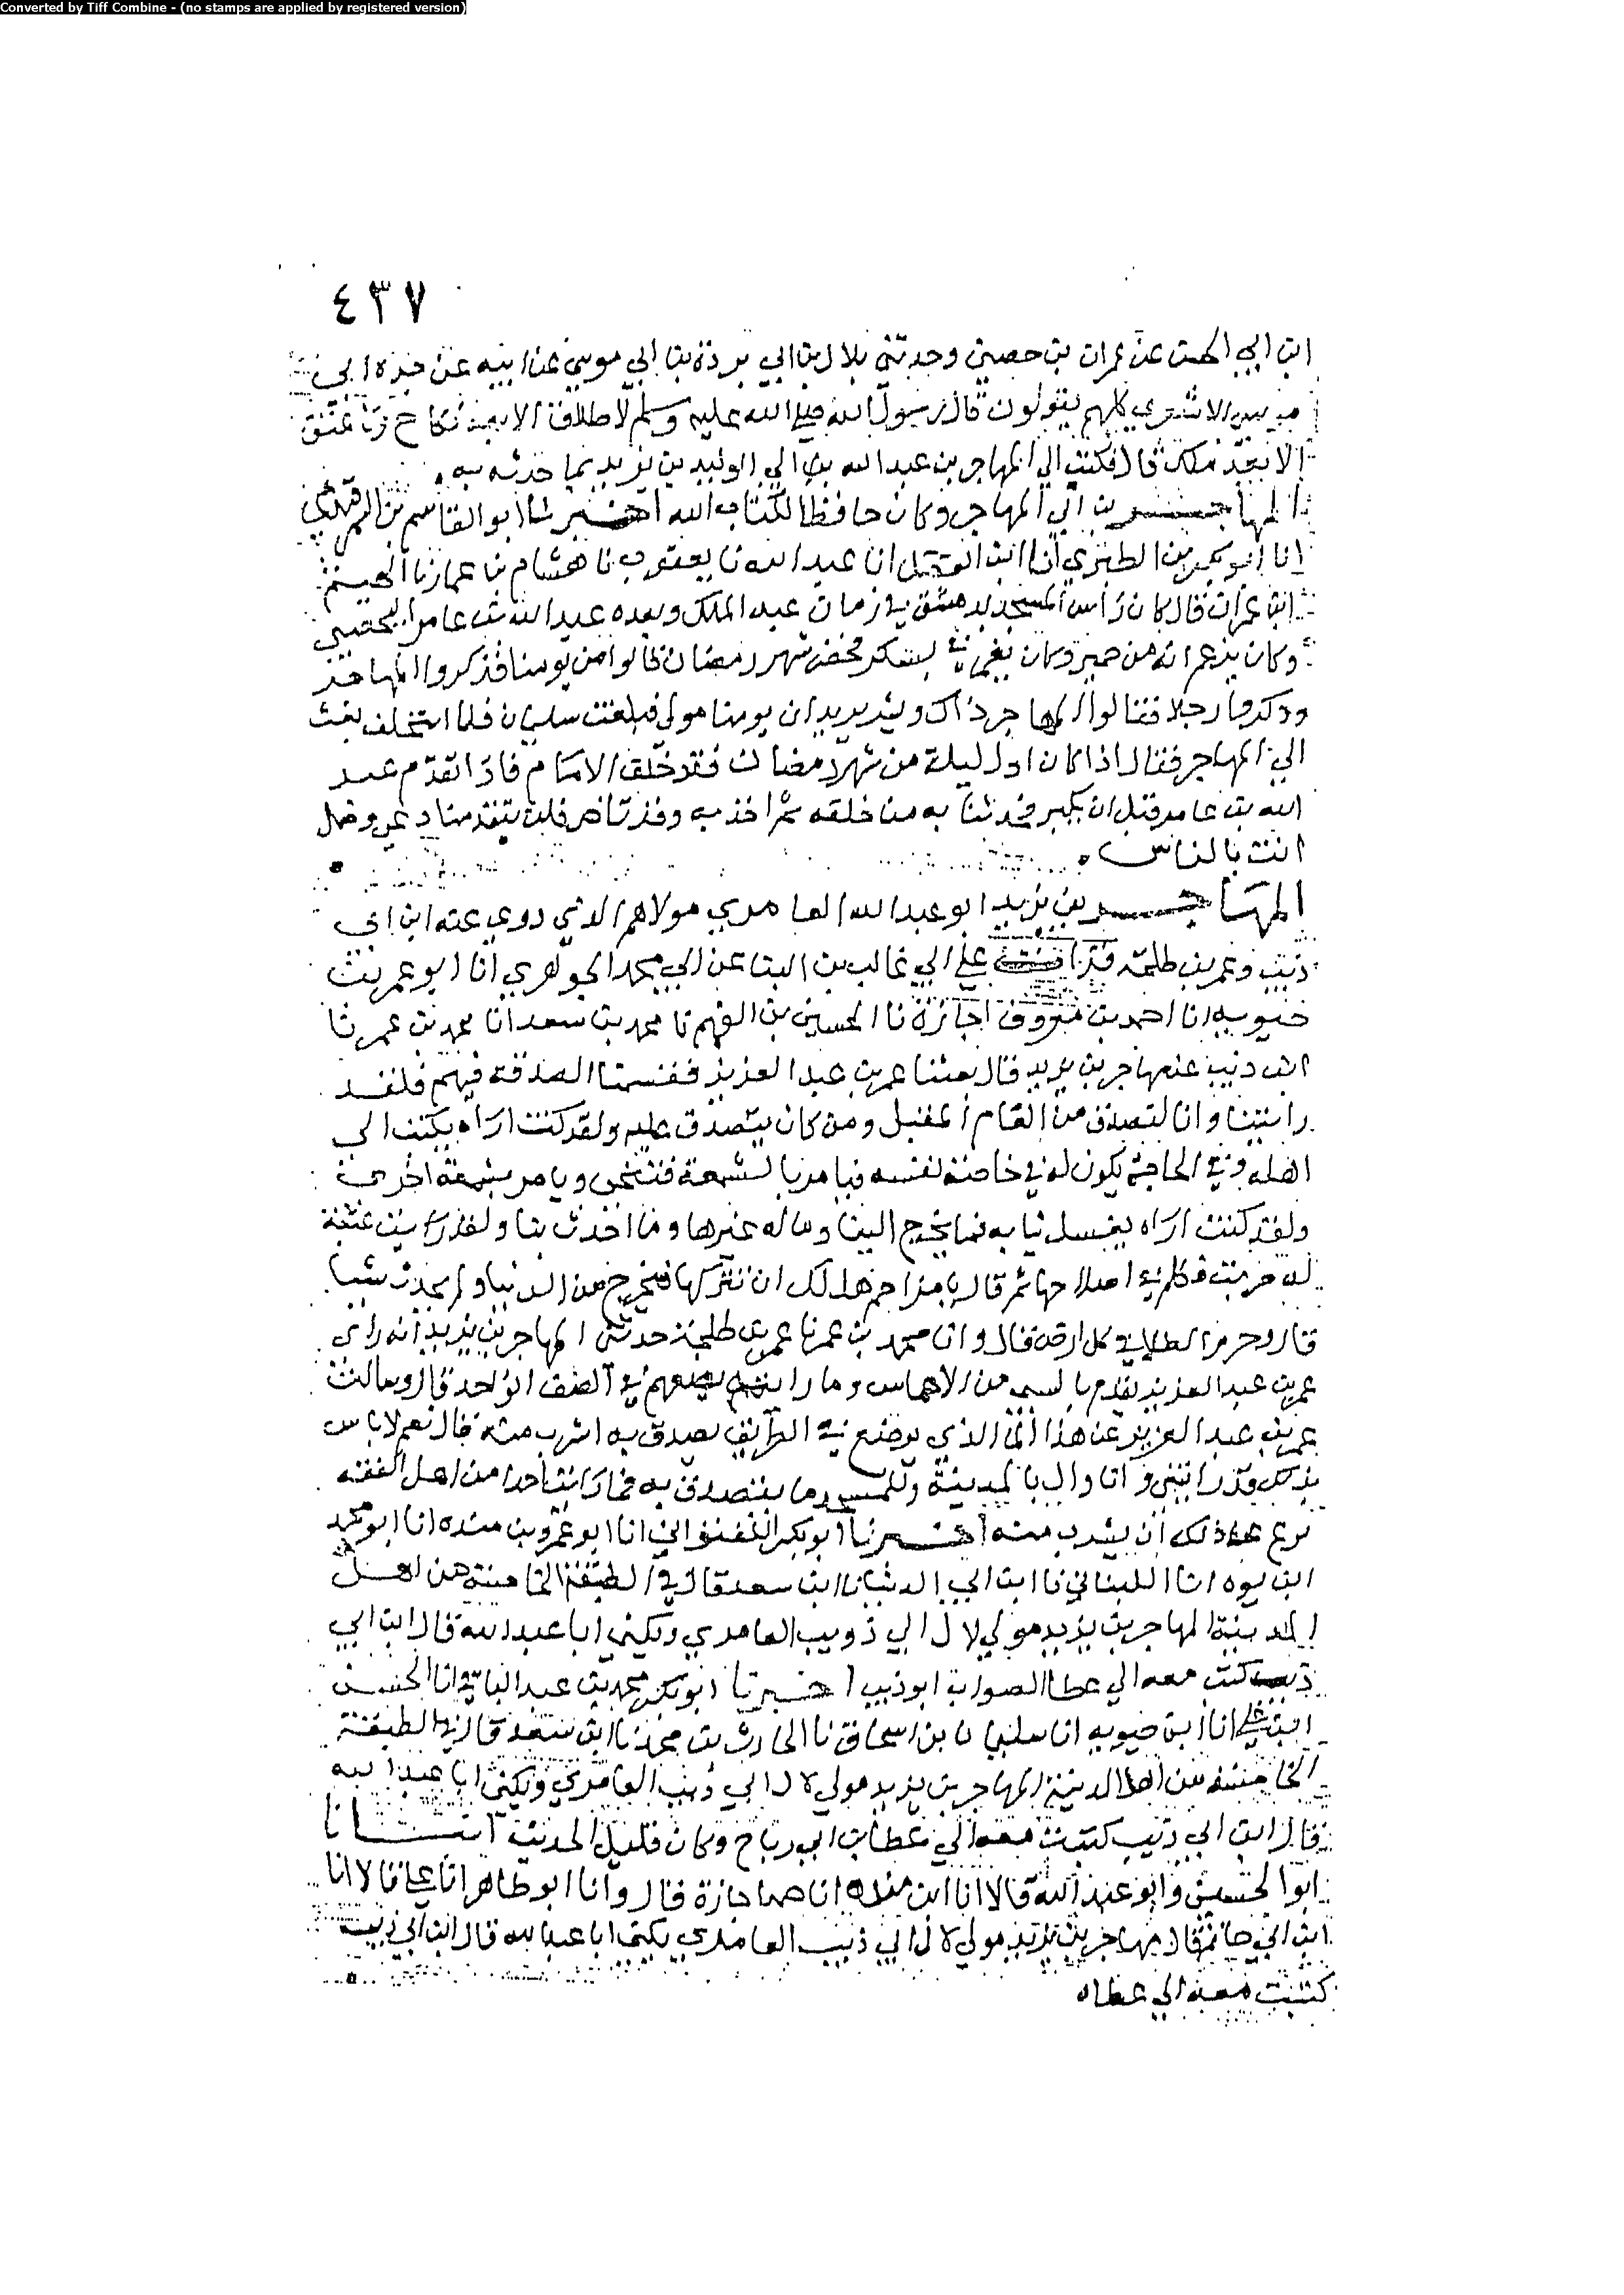 Converted by Tiff Combine - (no stamps are applied by registered version)
٤٣٧
ابن ابي الحسن عن عمران بن حصين وحدثني بلال بن ابي بردة بن ابي موسى عن ابيه عن جده ابي
موسى الاشعري كلهم يقولون قال رسول الله صلى الله عليه وسلم لا طلاق الا بعد نكاح ولا عتق
الا بعد ملك قال فكتب الي المهاجر بن عبد الله بن ابي الوليد بن يزيد بما حدثه به
المهاجر بن ابي المهاجر وكان حافظا لكتاب الله اخبرنا ابو القاسم بن السمرقندي
انا ابو بكر بن الطبري انا ابن الفضل انا عبد الله نا يعقوب نا هشام بن عمار نا الهيثم
ابن عمران قال كان راس المسجد بدمشق في زمان عبد الملك وبعده عبد الله بن عامر اليحصبي
وكان يزعم انه من حمير وكان يغمز في نسبه فحضر شهر رمضان فقالوا من يومنا فذكروا المهاجر
وذكروا رجلا فقالوا المهاجر ذاك ولسنا نريد ان يومنا مولى فبلغت سليمان فلما استخلف بعث
الى المهاجر فقال اذا كان اول ليلة من شهر رمضان فقف خلف الامام فاذا تقدم عبد
الله بن عامر قبل ان يكبر فخذ بثيابه من خلفه ثم اجذبه وقل تاخر فلن يتقدمنا دعي وصل
انت بالناس
المهاجر بن يزيد ابو عبد الله العامري مولاهم الذي روى عنه ابن ابي
ذئب وعمر بن طلحة قرات على ابي غالب بن البنا عن ابي محمد الجوهري انا ابو عمر بن
حيويه انا احمد بن معروف اجازة نا الحسين بن الفهم نا محمد بن سعد انا محمد بن عمر نا
ابن ذئب عن مهاجر بن يزيد قال بعثنا عمر بن عبد العزيز فقسمنا الصدقة فيهم فلقد
رايتنا وانا لنصدق من العام المقبل ومن كان يتصدق عليه ولقد كنت اراه يكتب الى
اهله وفي الحاجة يكون له في خاصة نفسه فيامر بالشمعة فتنحى ويامر بشمعة اخرى
ولقد كنت اراه يغسل ثيابه فما يخرج الينا وما له غيرها وما احدث بنا ولقد رايت عتبة
له خربت فكلم في اصلاحها ثم قال يا مزاحم هل لك ان نتركها فنخرج من الدنيا ولم نحدث شيا
قال وحرم الطلا في كل ارض قال وانا محمد بن عمر نا عمر بن طلحة حدثني المهاجر بن يزيد انه راى
عمر بن عبد العزيز
عمر بن عبد العزيز عن هذا الما الذي يوضع في الطريق يصدق به اشرب منه قال نعم لا باس
بذلك وقد رايتني وانا وال بالمدينة وللمسجد ما يتصدق به فما رايت احدا من اهل الفقه
يرع عن ذلك ان يشرب منه اخبرنا ابو بكر اللفتواني انا ابو عمرو بن منده انا ابو محمد
ابن يوه انا اللبناني نا ابن ابي الدنيا نا ابن سعد قال في الطبقة الخامسة من اهل
المدينة المهاجر بن يزيد مولى لال ابي ذويب العامري ويكنى ابا عبد الله قال ابن ابي
ذيب كتبت معه الى عطا الصواب ابو ذيب اخبرنا ابو بكر محمد بن عبد الباقي انا الحسن
ابن علي انا ابن حيويه انا سليمان بن اسحاق نا الحارث بن محمد نا ابن سعد قال في الطبقة
الخامسة من اهل المدينة المهاجر بن يزيد مولى لال ابي ذيب العامري ويكنى ابا عبد الله
قال ابن ابي ذيب كتبت معه الى عطا بن ابي رباح وكان قليل الحديث انبانا
ابو الحسين وابو عبد الله قالا انا ابن منده انا حمد اجازة قال وانا ابو طاهر انا علي قالا انا
ابن ابي حاتم قال مهاجر بن يزيد مولى لال ابي ذيب العامري يكنى ابا عبد الله قال ابن ابي ذيب
كتبت معه الى عطاه